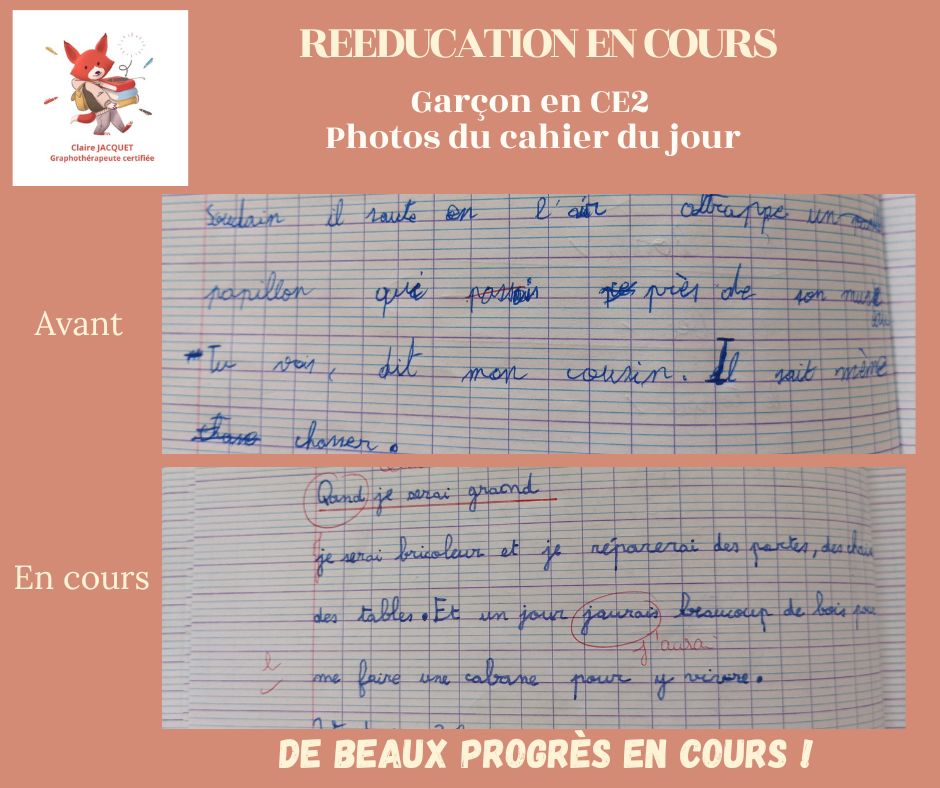 Claire JACQUET
Graphothérapeute certifiée
REEDUCATION EN COURS
Garçon en CE2
Photos du cahier du jour
Avant
Soudain il saute en l'air attrappe un
papillon qui passais près de son museau
Tu vois, dit mon cousin. Il sait même
chasser.
En cours
Qand je serai graond
je serai bricoleur et je réparerai des portes, des chai
des tables. Et un jour jaurais beaucoup de bois pour
j'aurai
me faire une cabane pour y vivre.
DE BEAUX PROGRÈS EN COURS !